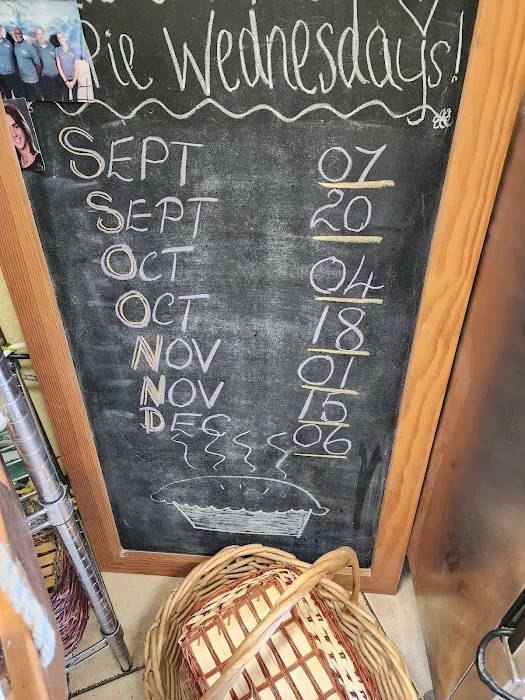 Pie Wednesdays!
SEPT 07
SEPT 20
OCT 04
OCT 18
NOV 01
NOV 15
DEC 06